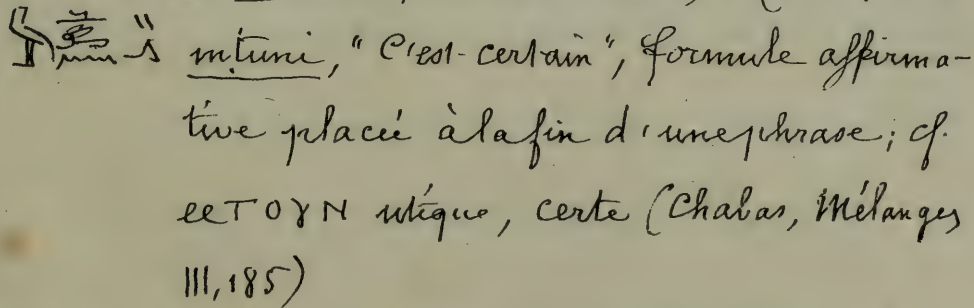 mtuni, "C'est-certain", formule affirma-
tive placée à la fin d'une phrase; cf.
ⲙⲧⲟⲩⲛ utique, certe (Chabas, Mélanges
III, 185)